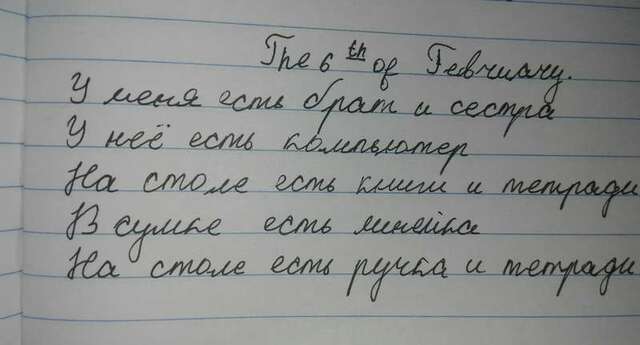 The 6th of February.
У меня есть брат и сестра
У неё есть компьютер
На столе есть книги и тетради
В сумке есть линейка
На столе есть ручка и тетради